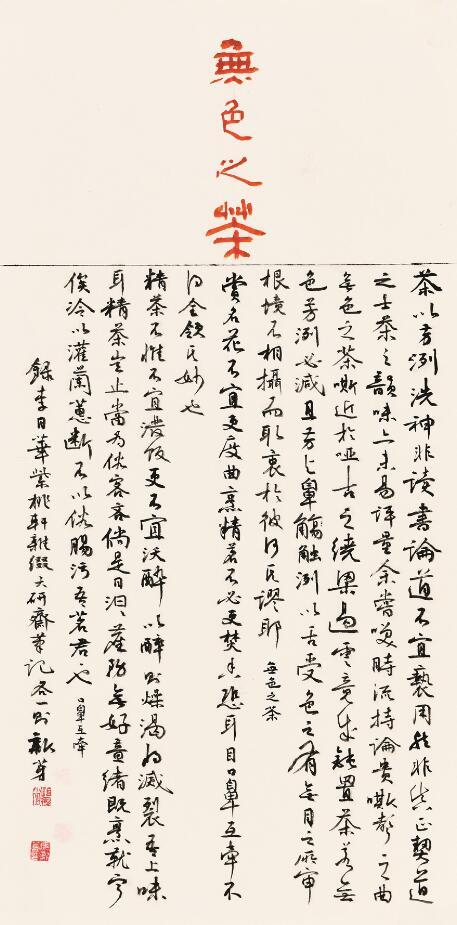 無色之茶
茶以芳洌洗神非读書論道不宜褻用然非真正契道
之士茶之韻味亦未易評量余嘗笑時流持論貴嘶聲之曲
無色之茶嘶近於啞古之繞梁遏雲竟成鈍置茶若無
色芳洌必減且芳与鼻觸洌以舌受色之有無目之所審
根境不相攝而取衷於彼何其謬耶 無色之茶
賞名花不宜更度曲烹精茗不必更焚香恐耳目口鼻互牽不
得全領其妙也
精茶不惟不宜潑飯更不宜沃醉以醉則燥渴將滅裂吾上味
耳精茶豈止當為俗客吝倘是日汩汩塵務無好意緒既烹就寧
俟冷以灌蘭蕙斷不以俗腸污吾茗君也 口鼻互牽
錄李日華紫桃軒雜綴六研齋筆記各一則